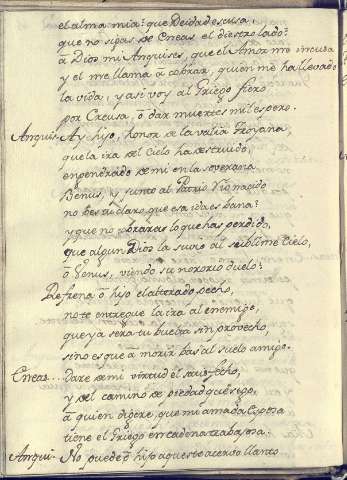 el alma mia: que Deidad escusa.
que no sigas de Eneas el diestro lado?
a Dios mi Anquises, que el Amor me incusa
y el me llama a cobrar, quien me ha llevado
la vida, y asi voy al Griego fiero
por Creusa, o dar muertes mil espero.
Anquis. Ay hijo, honor de la valia Troyana,
que la ira del Cielo ha destruido,
engendrado de mi en la soverana
Venus, y junto al Patrio Rio nacido
no bes tu claro, que esa ida es bana?
y que no cobraras lo que has perdido,
que algun Dios la suvio al sublime Cielo,
o Venus, viendo su notorio duelo?
Refrena o hijo el alterado pecho,
no te entregue la ira al enemigo,
que ya sera tu buelta sin provecho,
sino es que a morir bas al suelo amigo.
Eneas... Dare de mi virtud el satisfecho,
y del camino de piedad que sigo,
a quien digere, que mi amada Esposa
tiene el Griego en cadena trabajosa.
Anqui- No puede o hijo aqueste acervo llanto